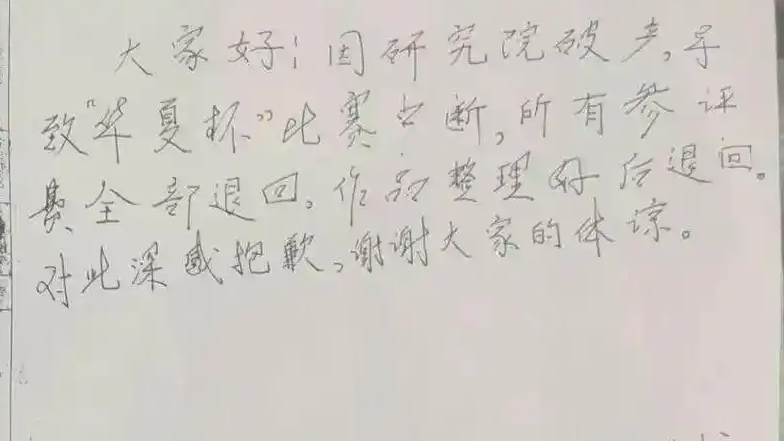 大家好！因研究院破产，导
致“华夏杯”比赛中断，所有参评
费全部退回，作品整理好后退回。
对此深感抱歉，谢谢大家的体谅。